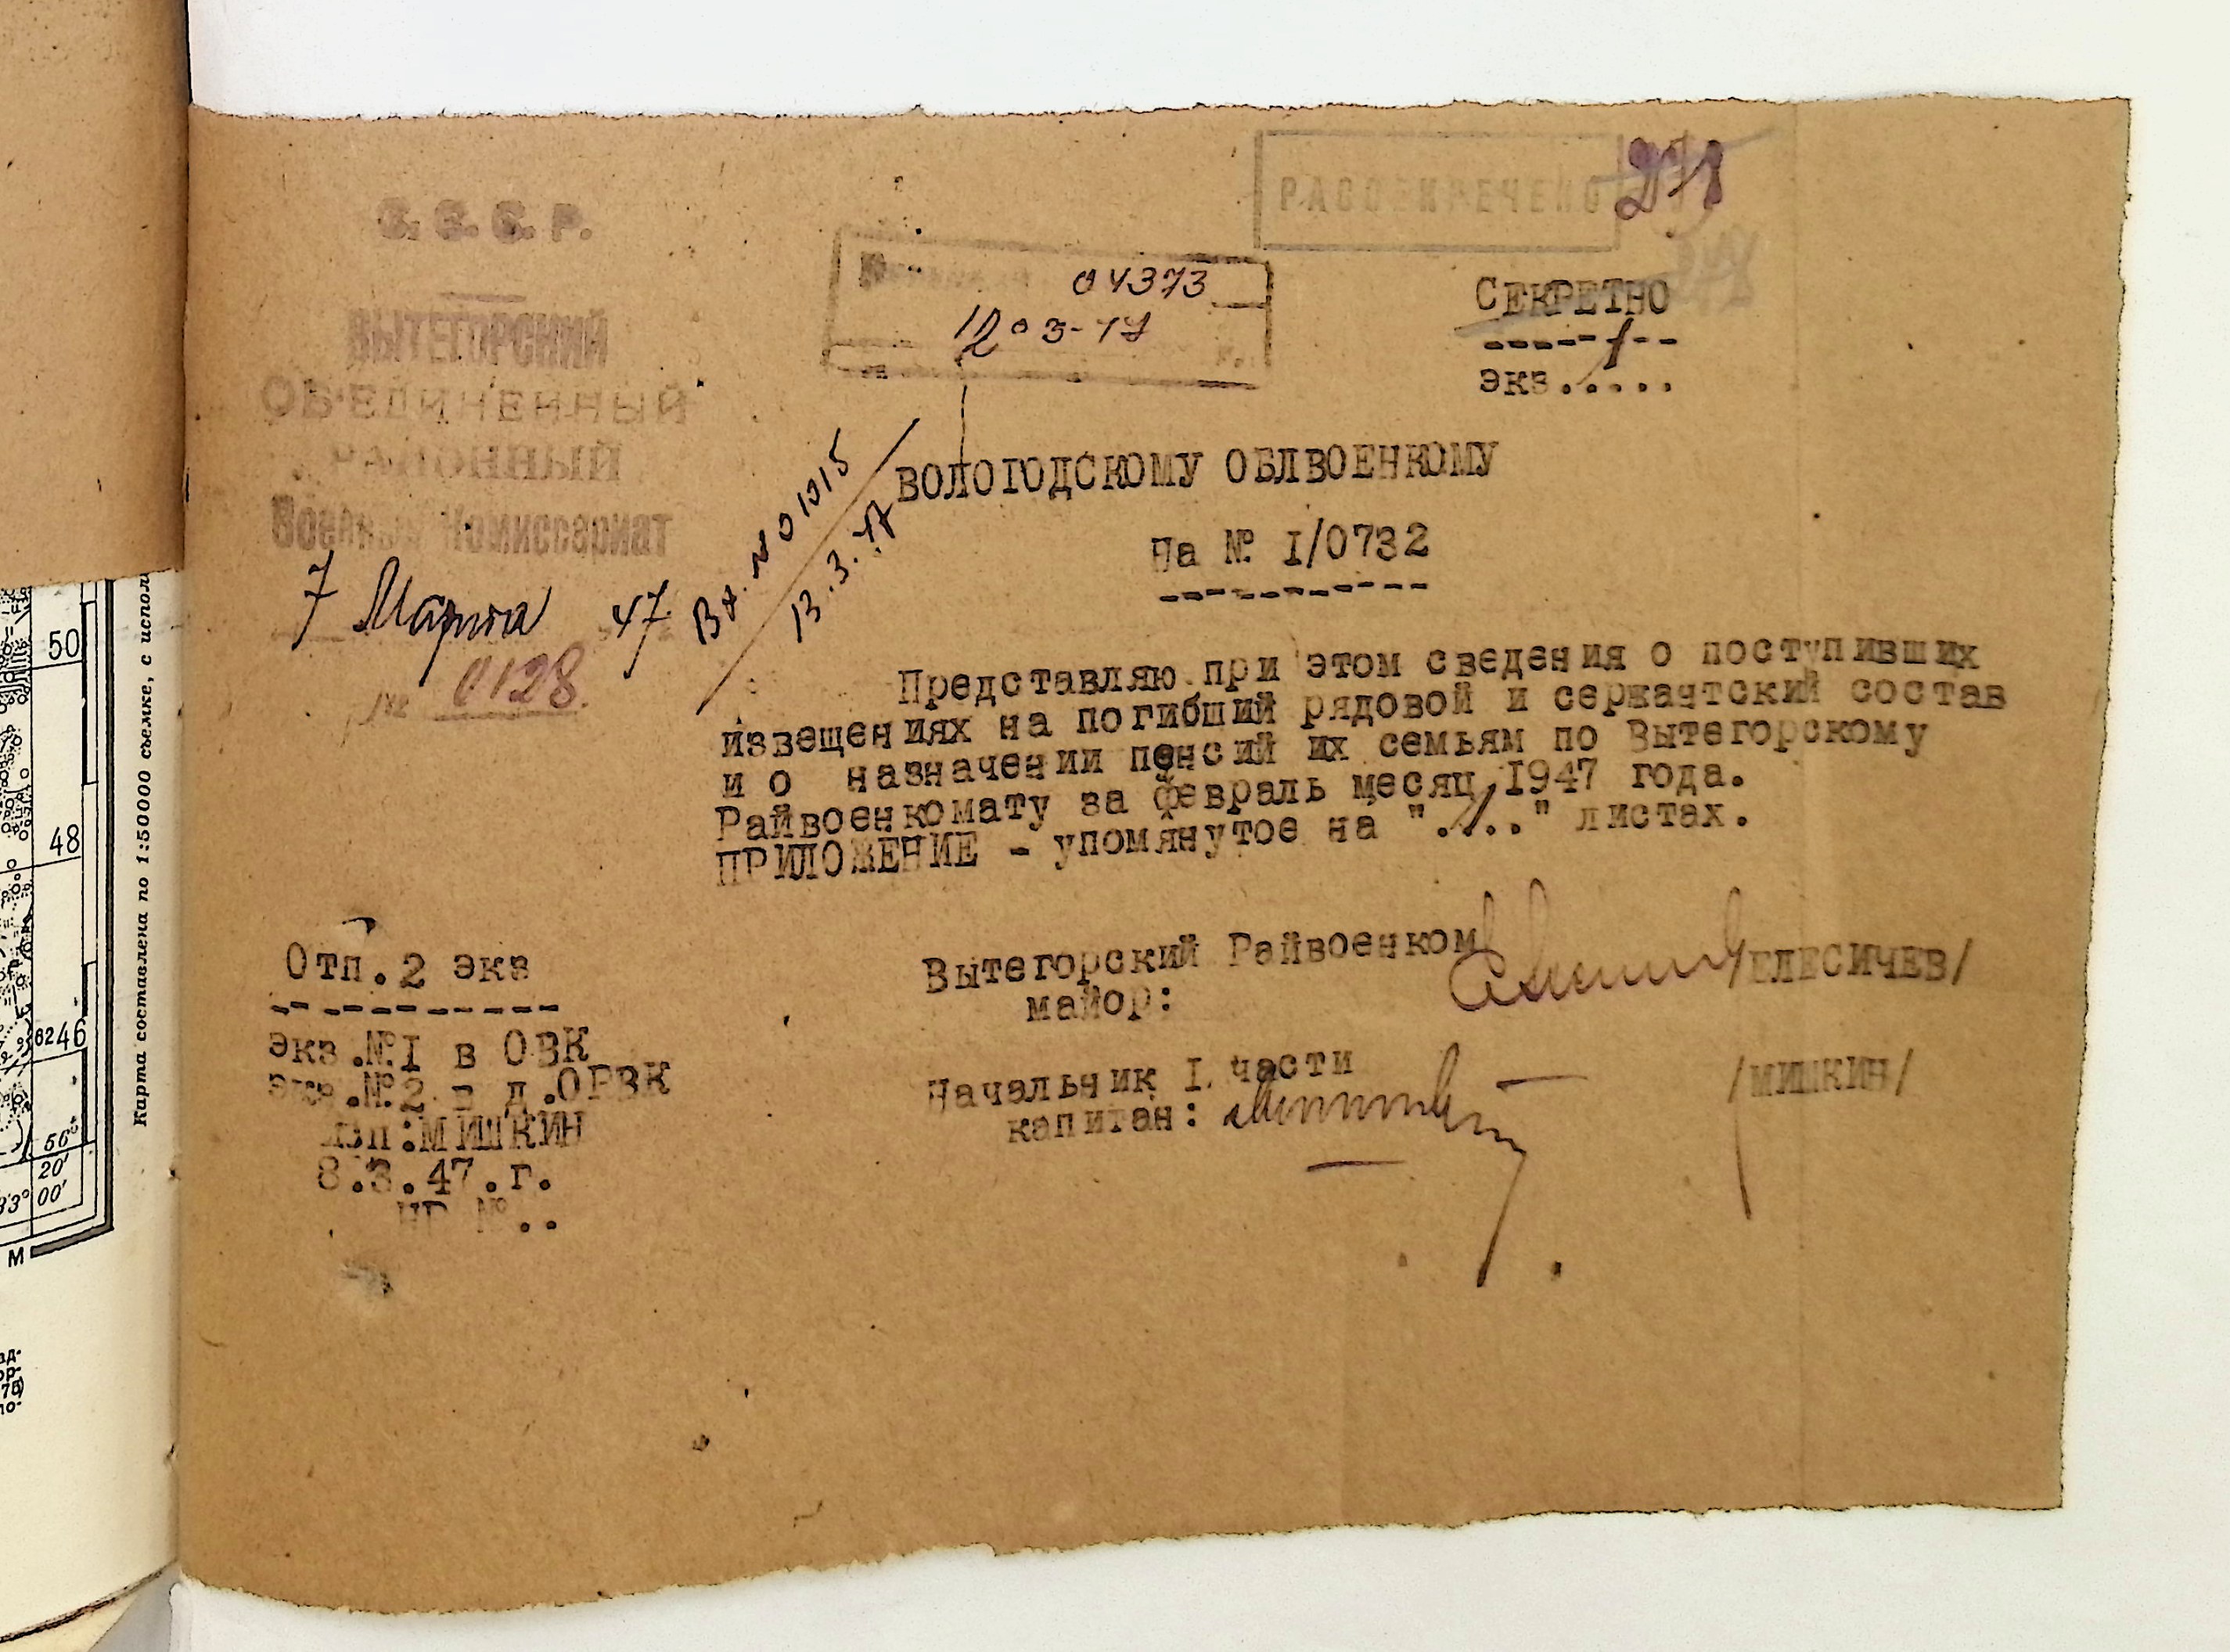 РАССЕКРЕЧЕНО
278
С. С. С. Р.
ВЫТЕГОРСКИЙ
ОБ'ЕДИНЕННЫЙ
РАЙОННЫЙ
Военный Комиссариат
7 Марта 47
№ 0128.
04373
12 03-47
Вх. № 01015
13.3.47
СЕКРЕТНО
экз. 1
ВОЛОГОДСКОМУ ОБЛВОЕНКОМУ
На № I/0732
Представляю при этом сведения о поступивших
извещениях на погибший рядовой и сержантский состав
и о назначении пенсий их семьям по Вытегорскому
Райвоенкомату за февраль месяц 1947 года.
ПРИЛОЖЕНИЕ - упомянутое на ".1.." листах.
Вытегорский Райвоенком
майор: /ЕЛЕСИЧЕВ/
Начальник I. части
капитан: /МИШКИН/
Отп.2 экз
экз.№I в ОВК
экз.№2 в д.ОРВК
исп:МИШКИН
8.3.47.г.
НР №..
50
48
6246
56°
20'
33°00'
М
Карта составлена по 1:50000 съемке, с испол